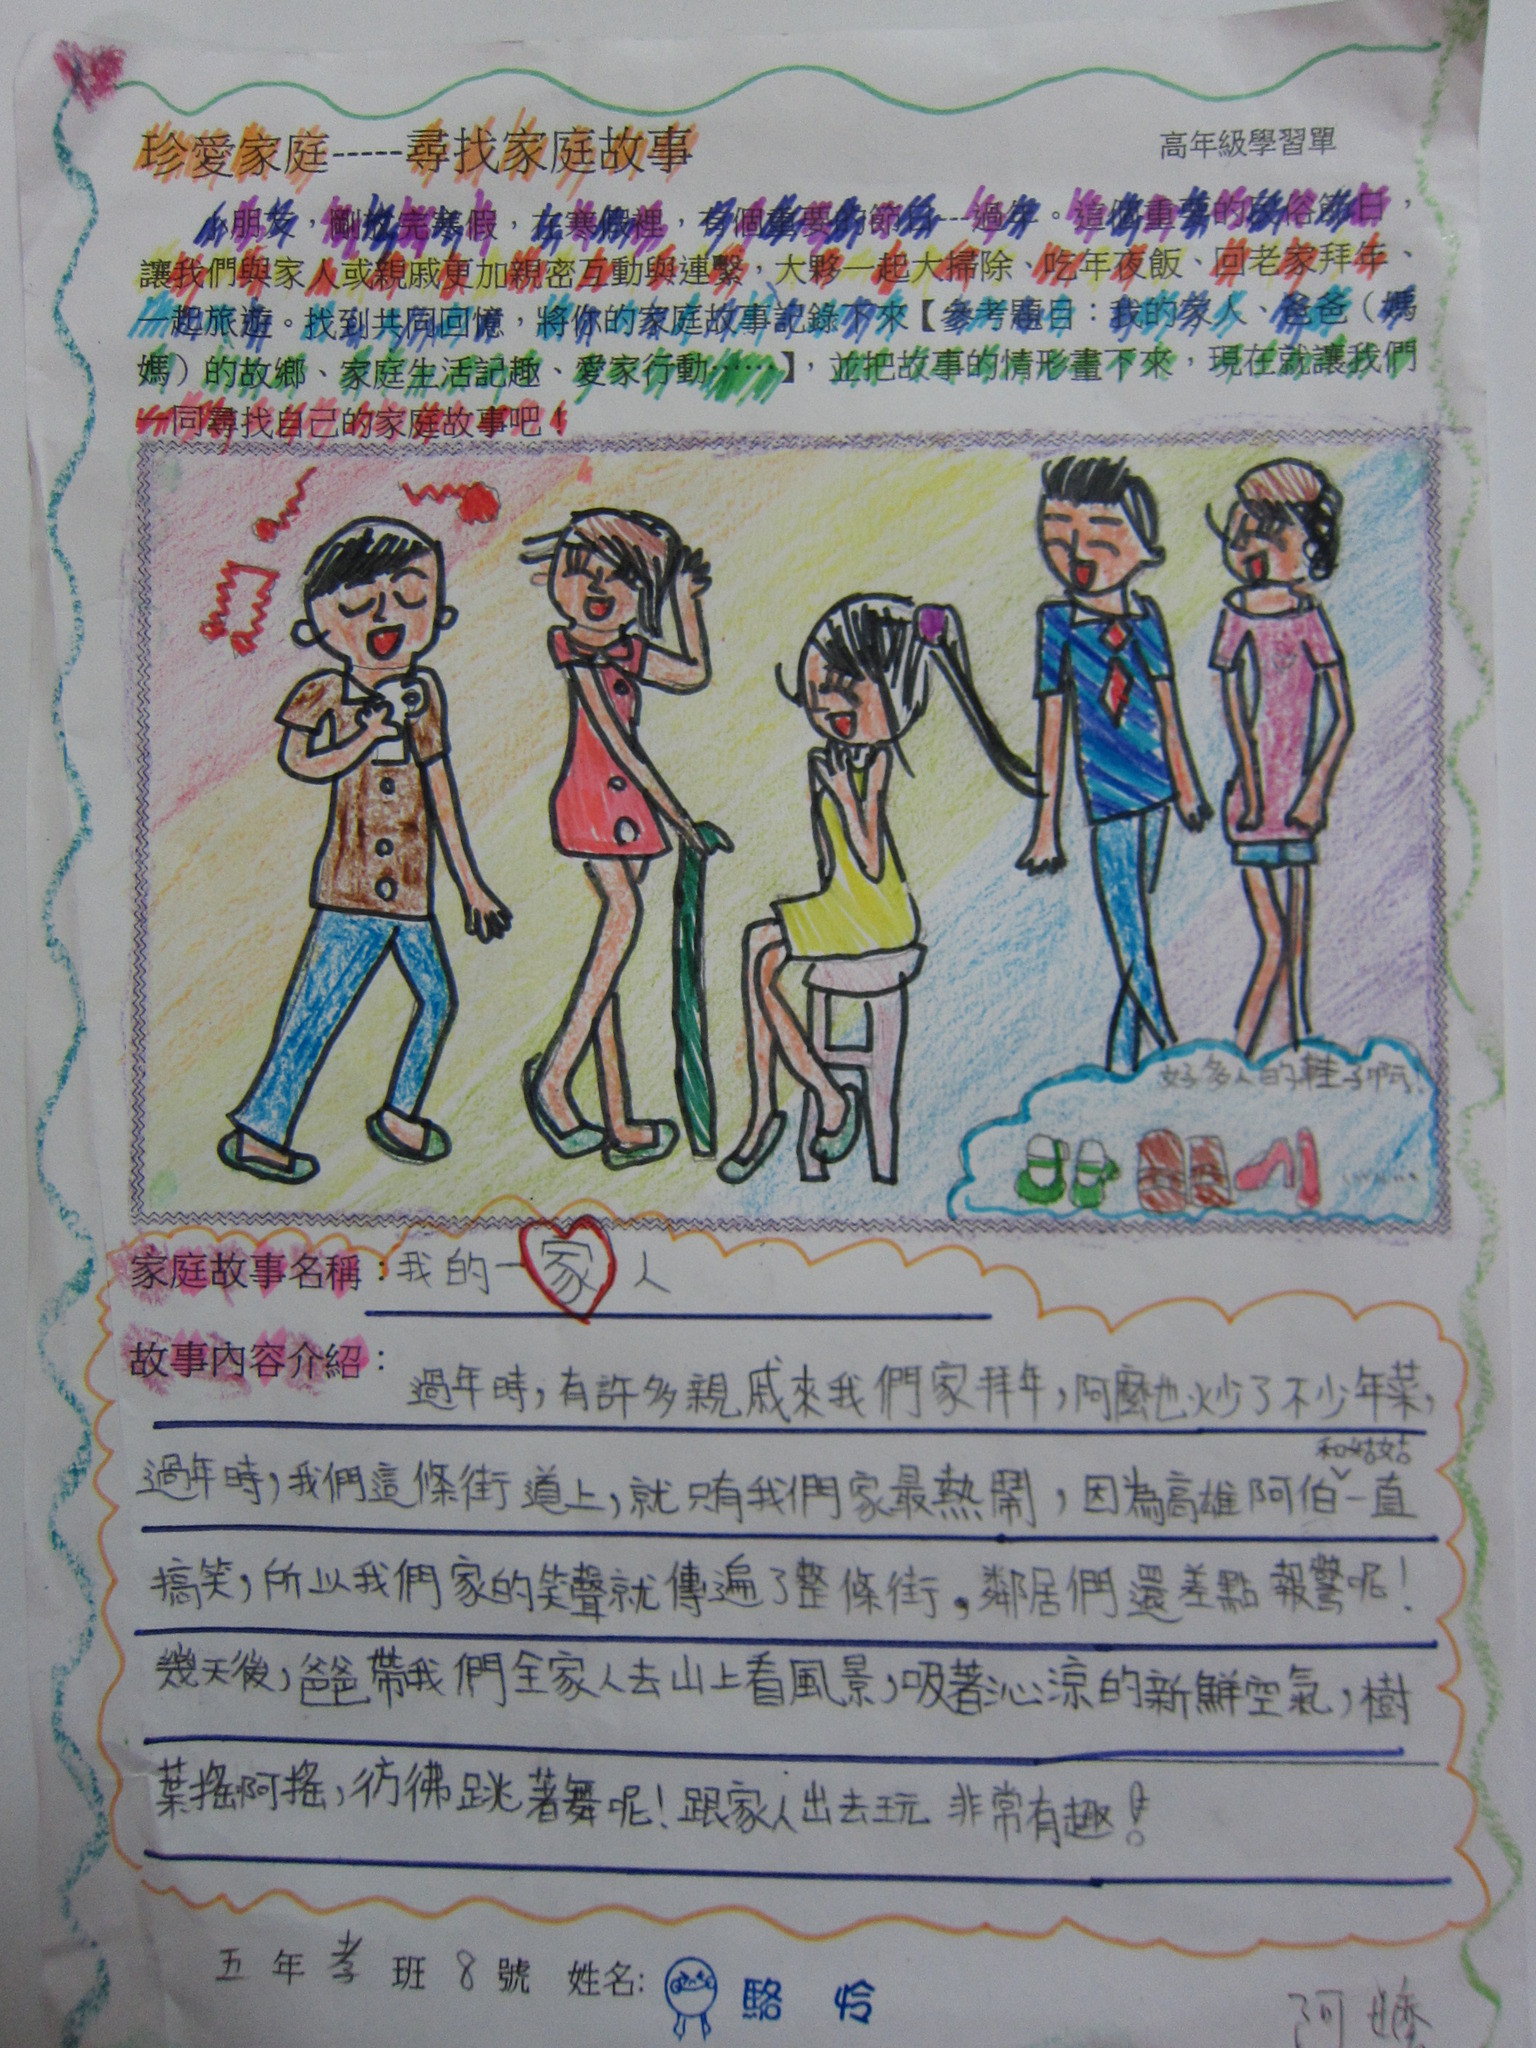 珍愛家庭-----尋找家庭故事
高年級學習單
小朋友，剛放完寒假，在寒假裡，有個重要的節日---過年。這個重要的民俗節日，
讓我們與家人或親戚更加親密互動與連繫，大夥一起大掃除、吃年夜飯、回老家拜年、
一起旅遊。找到共同回憶，將你的家庭故事記錄下來【參考題目：我的家人、爸爸（媽
媽）的故鄉、家庭生活記趣、愛家行動……】，並把故事的情形畫下來，現在就讓我們
一同尋找自己的家庭故事吧！
好多人的鞋子啊
家庭故事名稱：我的一家人
故事內容介紹：
過年時，有許多親戚來我們家拜年，阿麼也炒了不少年菜，
和姑姑
過年時，我們這條街道上，就只有我們家最熱鬧，因為高雄阿伯一直
搞笑，所以我們家的笑聲就傳遍了整條街，鄰居們還差點報警呢！
幾天後，爸爸帶我們全家人去山上看風景，吸著沁涼的新鮮空氣，樹
葉搖啊搖，彷彿跳著舞呢！跟家人出去玩非常有趣！
五年孝班8號 姓名: 駱 怜
阿嬤